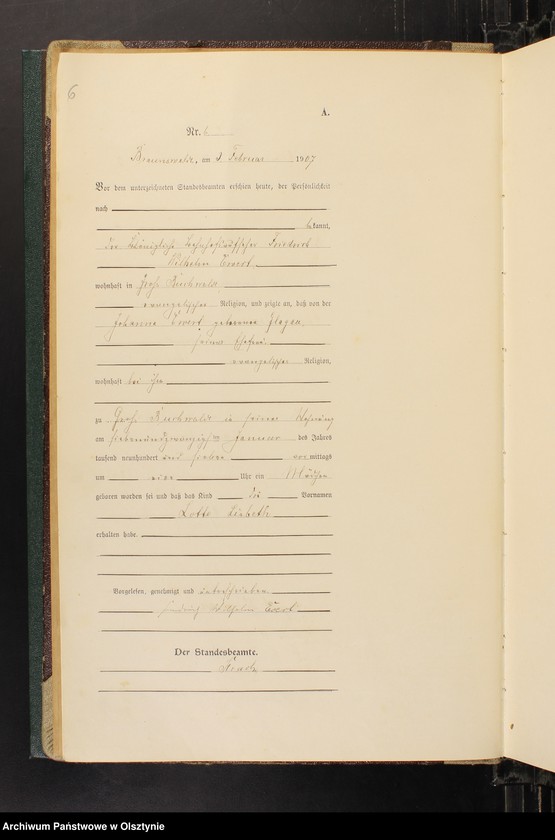 6
A.
Nr. 6
Braunswalde, am 1. Februar 1907
Vor dem unterzeichneten Standesbeamten erschien heute, der Persönlichkeit
nach
bekannt,
der Königliche Friedrich
Wilhelm Ewert
wohnhaft in Groß Buchwalde
evangelischer Religion, und zeigte an, daß von der
Johanna Ewert geborenen
seiner Ehefrau
evangelischer Religion,
wohnhaft bei ihm
zu Groß Buchwalde in seiner Wohnung
am siebenundzwanzigsten Januar des Jahrs
tausend neunhundert und sieben vormittags
um Uhr ein Mädchen
geboren worden sei und daß das Kind die Vornamen
Lotte Lisbeth
erhalten habe.
Vorgelesen, genehmigt und unterschrieben
Friedrich Wilhelm Ewert
Der Standesbeamte.
Archiwum Państwowe w Olsztynie